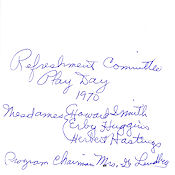 Refreshment Committee
Play Day
1970
Mesdames Howard Smith
Erby Huggins
Herbert Hastings
Program Chairman Mrs.